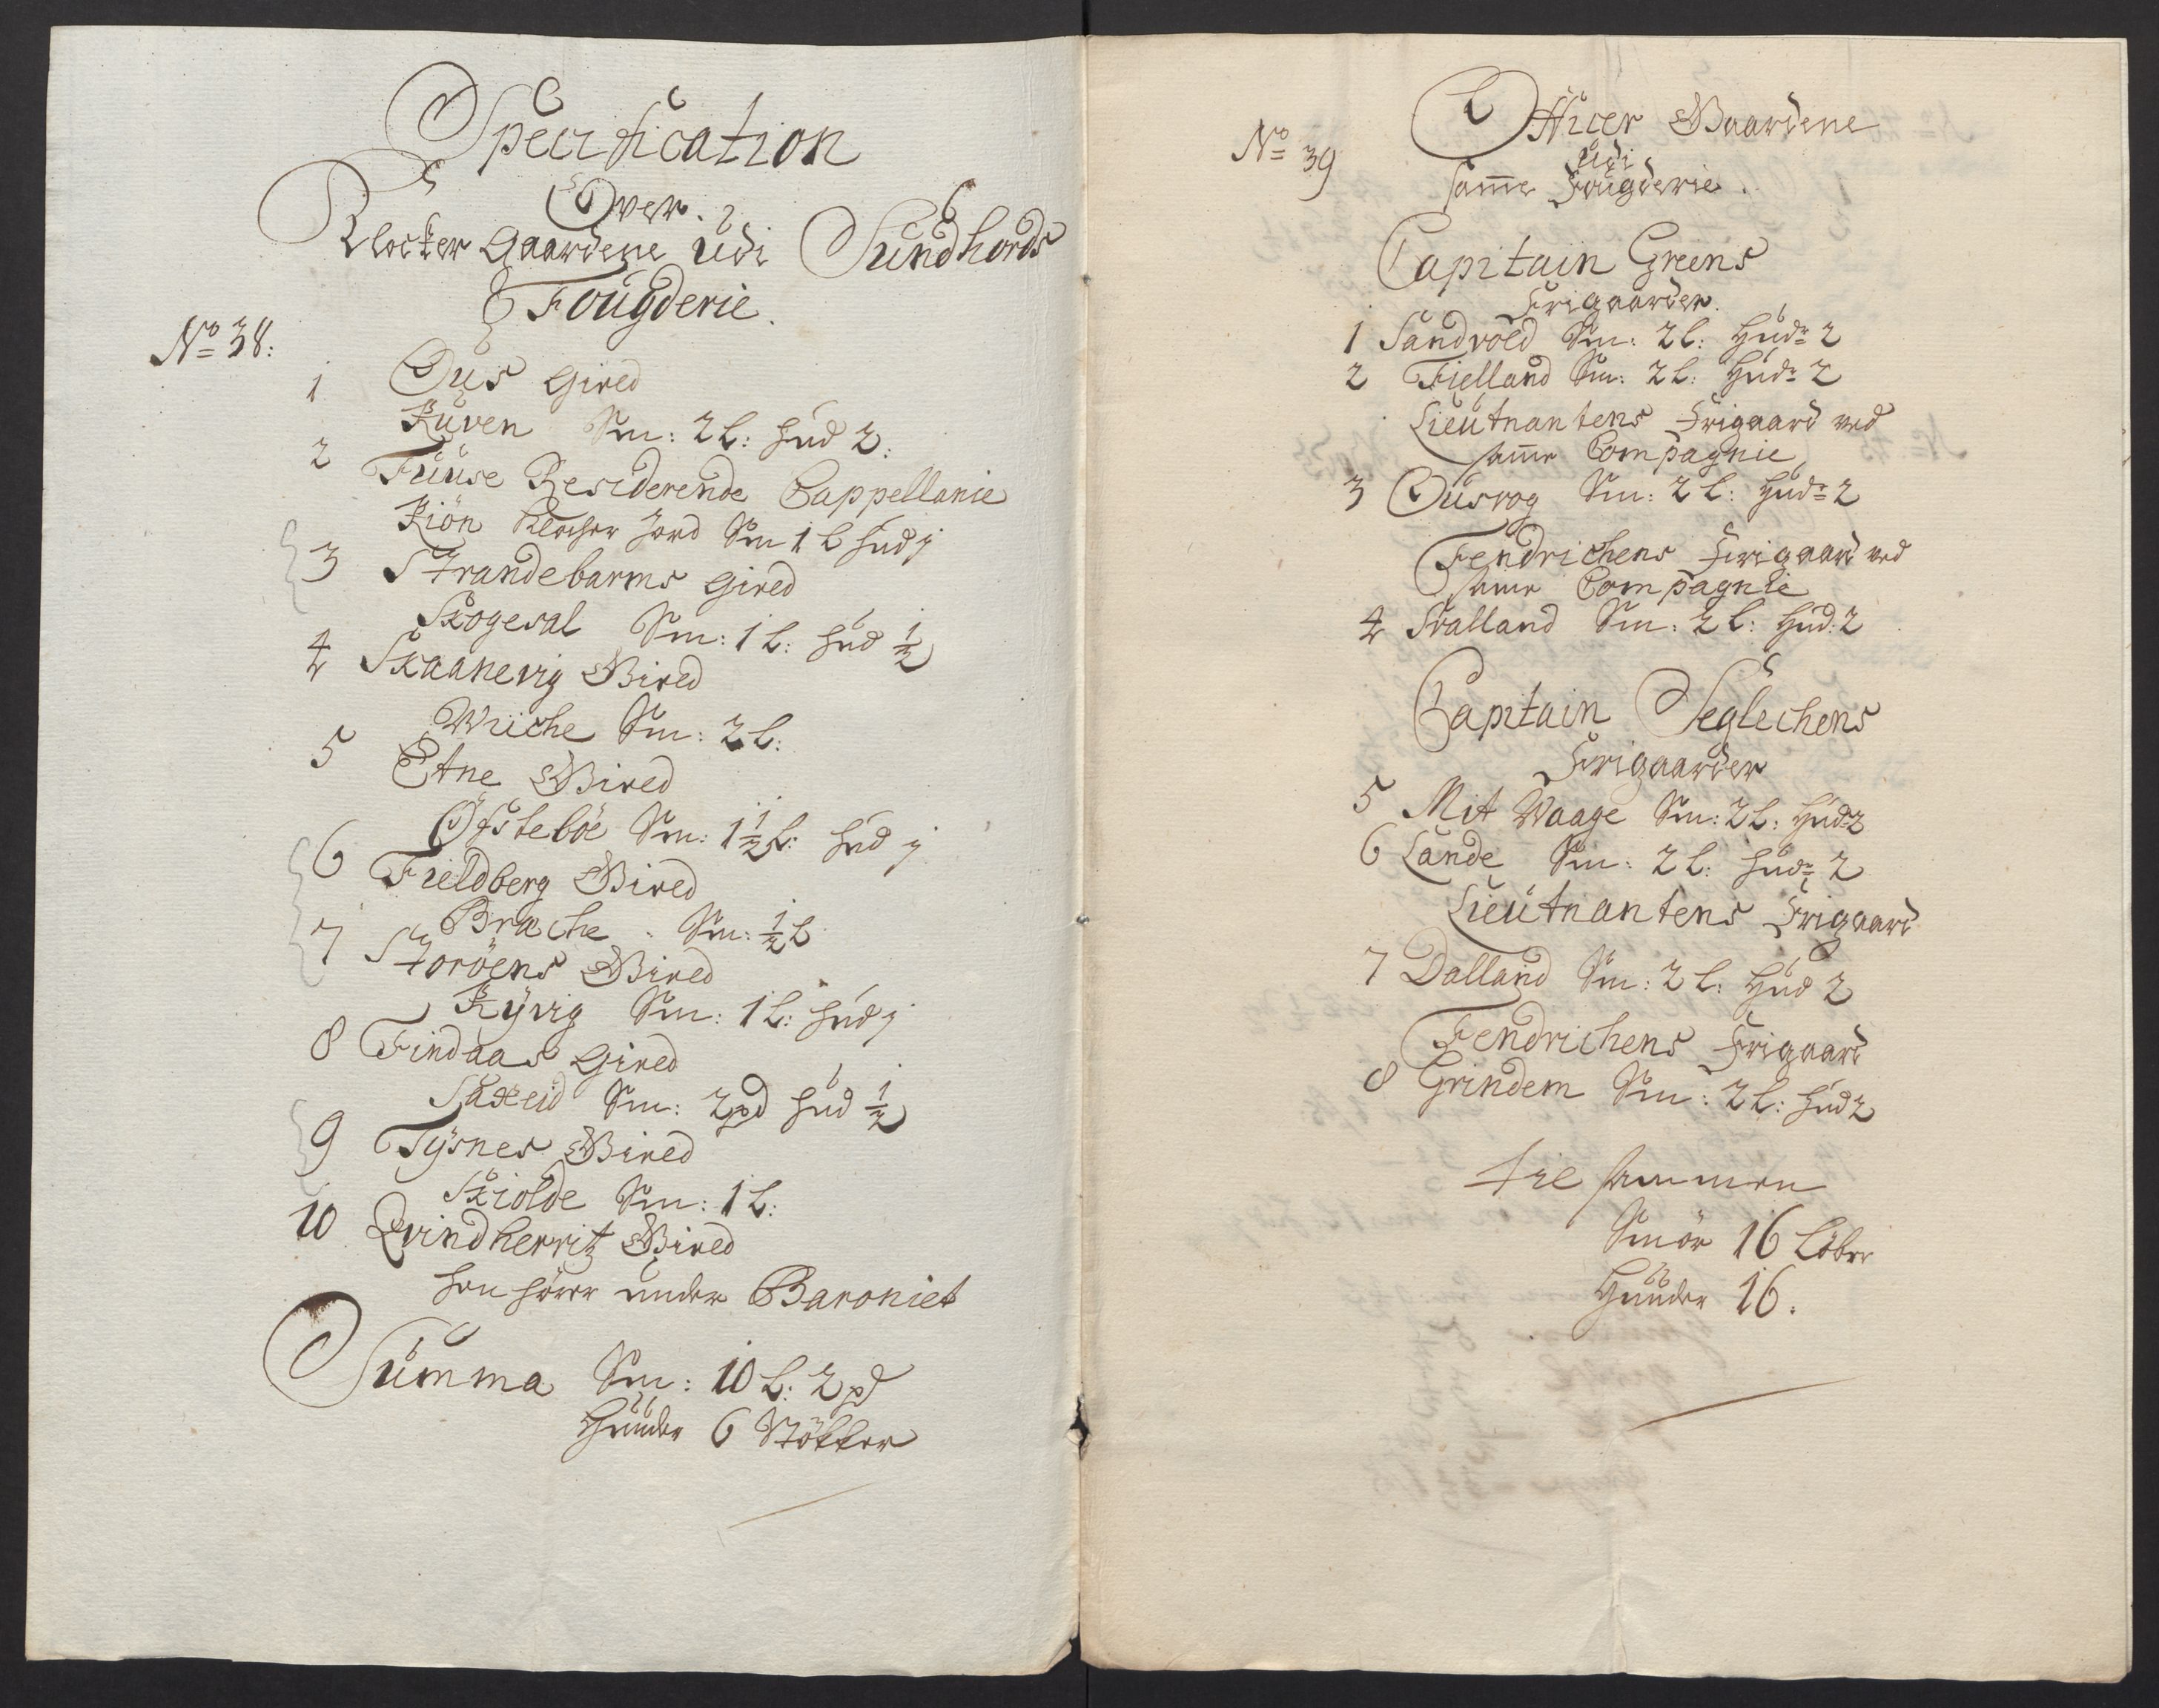 Specification
Over
Klocker Gaardene udi Sundhords
Fougderie.
No 38:
1 Ous Gield
Kuven Sm: 2 L: Hud 2:
2 Fuuse Residerende Cappellanie
Kiön Klocher Jord Sm 1 L Hud j
3 Strandebarms Gield
Skogesal Sm: 1 L: Hud 1/2
4 Skaanevig Gield
Wiiche Sm: 2 L:
5 Etne Gield
Öfsteböe Sm: 1 1/2 L: Hud j
6 Fieldberg Gield
Bræche Sm: 1/2 L
7 Storöens Gield
Kyvig Sm: 1 L: Hud j
8 Findaas Gield
Saxeid Sm: 2 pd Hud 1/2
9 Tysnes Gield
Skiolde Sm: 1 L:
10 Qvindherritz Gield
hen hörer under Baroniet
Summa Sm: 10 L: 2 pd
Huuder 6 Stökker
No 39
Officer Gaardene
udi
samme Fougderie.
Capitain Greens
Frigaarder.
1 Sandvold Sm: 2 L: Hudr 2
2 Fielland Sm: 2 L: Hudr 2
Lieutnantens Frigaard ved
samme Compagnie
3 Ousvog Sm: 2 L: Hudr 2
Fendrichens Frigaard ved
samme Compagnie
4 Svalland Sm: 2 L: Hud: 2
Capitain Seglechens
Frigaarder
5 Mit Waage Sm: 2 L: Hudr 2
6 Lande Sm: 2 L: Hudr 2
Lieutnantens Frigaard
7 Dalland Sm: 2 L: Hud 2
Fendrichens Frigaard
8 Grindem Sm: 2 L: Hud 2
tilsammen
Smör 16 Löber
Huuder 16.